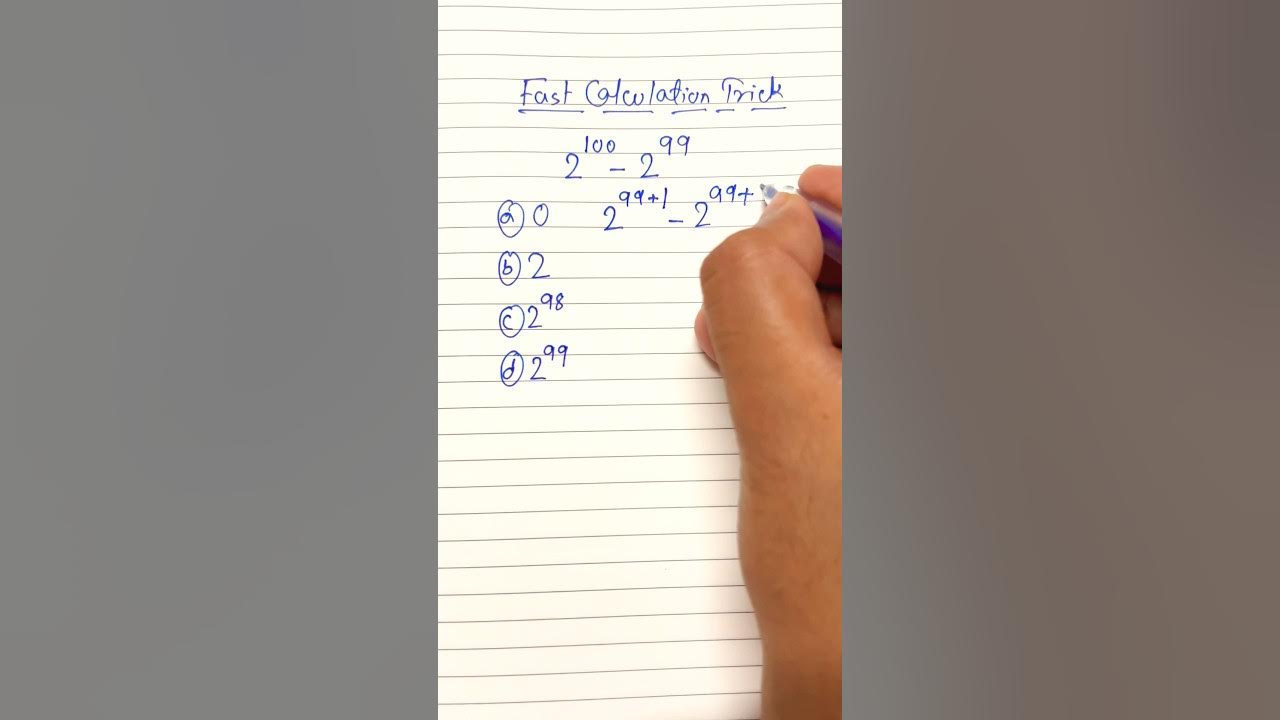 Fast Calculation Trick
2^100 - 2^99
(a) 0 2^99+1 - 2^99+
(b) 2
(c) 2^98
(d) 2^99